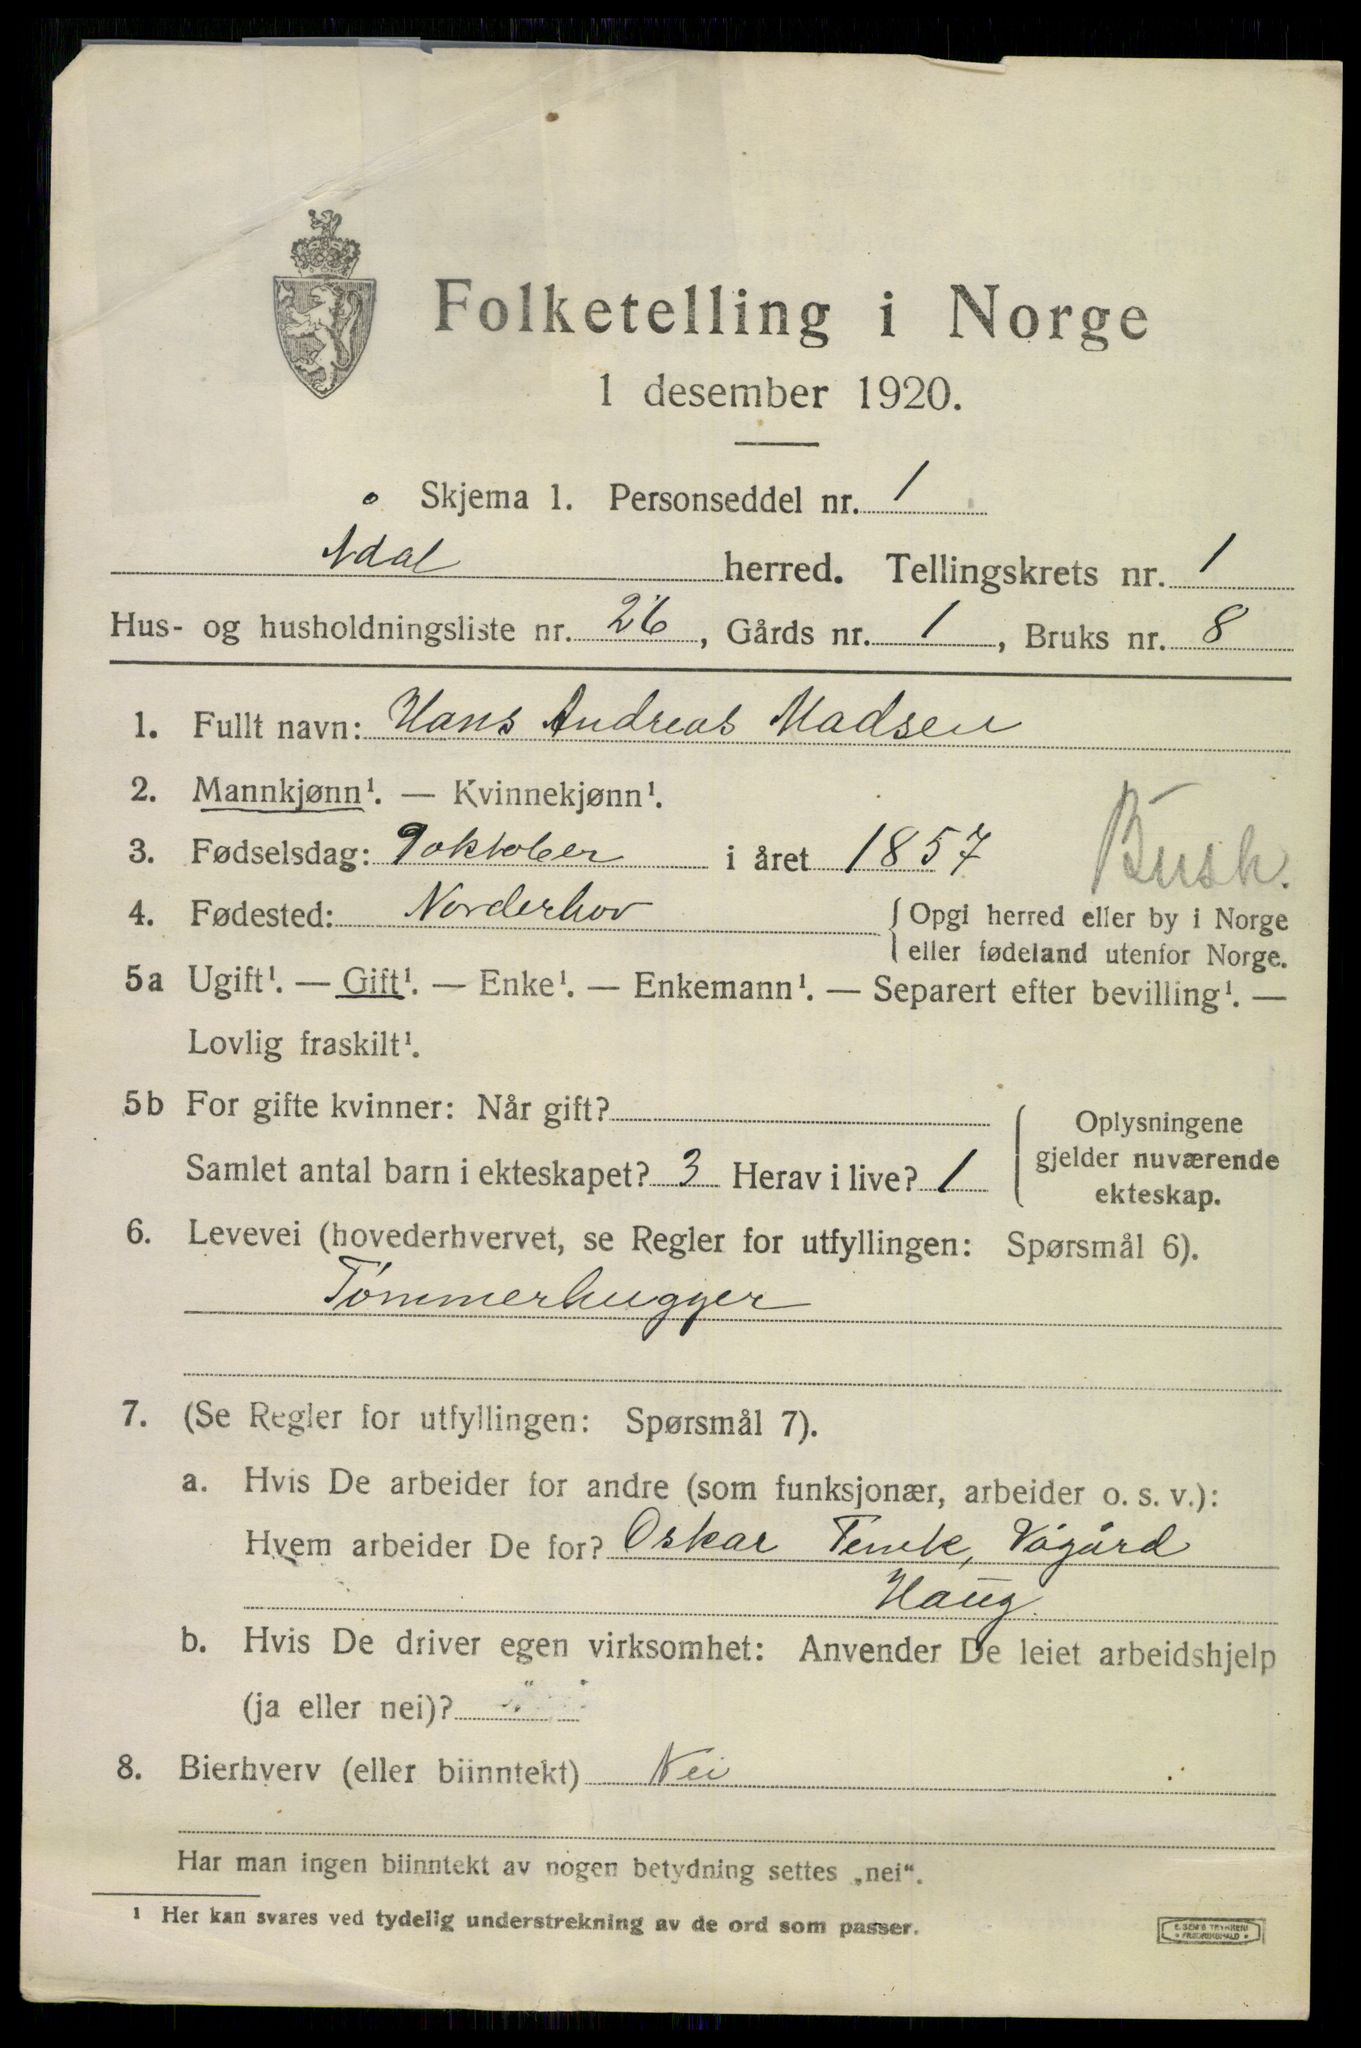 Folketelling i Norge
1 desember 1920.
Skjema 1. Personseddel nr. 1
Ådal herred. Tellingskrets nr. 1
Hus- og husholdningsliste nr. 26, Gårds nr. 1, Bruks nr. 8
1. Fullt navn: Hans Andreas Madsen
2. Mannkjønn¹. — Kvinnekjønn¹.
3. Fødselsdag: 9 oktober i året 1857
Busk.
4. Fødested: Norderhov { Opgi herred eller by i Norge
eller fødeland utenfor Norge.
5a Ugift¹. — Gift¹. — Enke¹. — Enkemann¹. — Separert efter bevilling¹. —
Lovlig fraskilt¹.
5b For gifte kvinner: Når gift?
Samlet antal barn i ekteskapet? 3 Herav i live? 1
Oplysningene
gjelder nuværende
ekteskap.
6. Levevei (hovederhvervet, se Regler for utfyllingen: Spørsmål 6).
Tømmerhugger
7. (Se Regler for utfyllingen: Spørsmål 7).
a. Hvis De arbeider for andre (som funksjonær, arbeider o. s. v.):
Hvem arbeider De for? Oskar Vågård
Haug.
b. Hvis De driver egen virksomhet: Anvender De leiet arbeidshjelp
(ja eller nei)?
8. Bierhverv (eller biinntekt) Nei
Har man ingen biinntekt av nogen betydning settes „nei“.
¹ Her kan svares ved tydelig understrekning av de ord som passer.
E. SEM'S TRYKKERI
FREDRIKSHALD